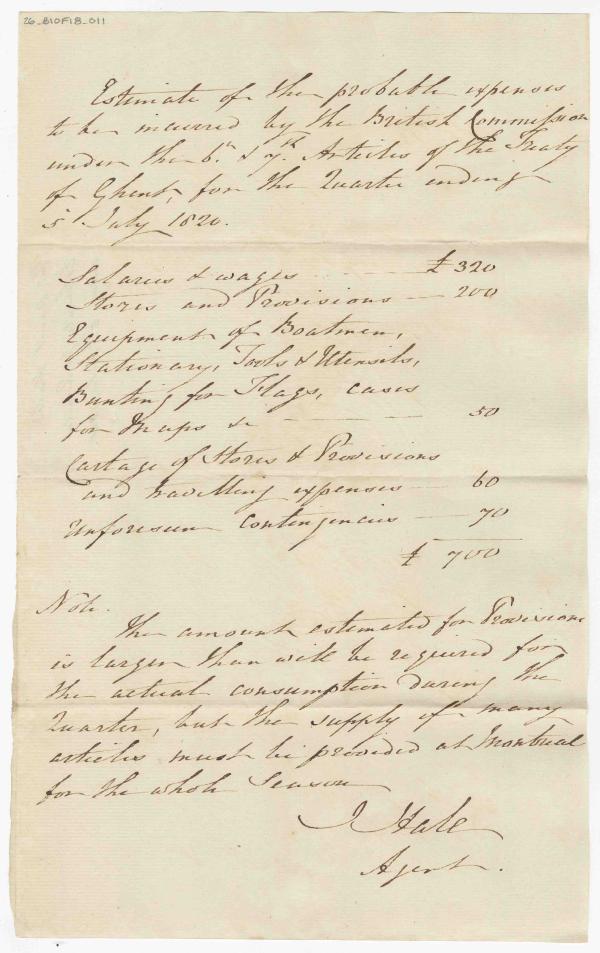 26_B10F18_011
Estimate of the probable expenses
to be incurred by the British Commission
under the 6th. & 7th. Articles of the Treaty
of Ghent, for the Quarter ending
5 July 1820.
Salaries & wages £ 320
Stores and Provisions 200
Equipment of Boatmen,
Stationary, Tools & Utensils,
Bunting for Flags, cases
for Maps &c 50
Cartage of Stores & Provisions
and travelling expenses 60
Unforeseen Contingencies 70
£ 700
Note.
The amount estimated for Provisions
is larger than will be required for
the actual consumption during the
Quarter, but the supply of many
articles must be provided at Montreal
for the whole Season
J Hale
Agent.